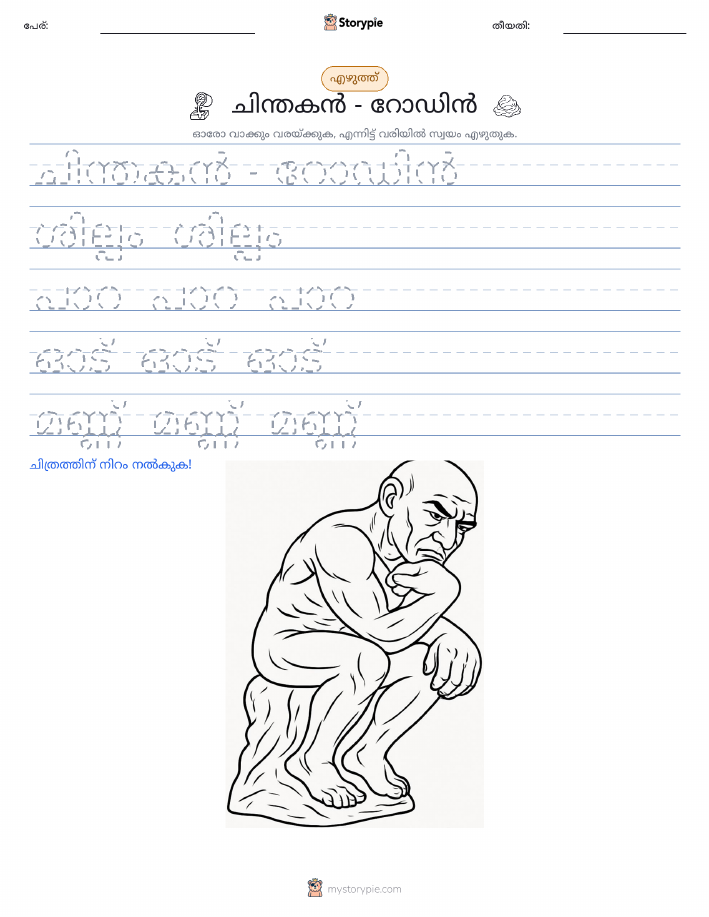 പേര്:
Storypie
തീയതി:
എഴുത്ത്
ചിന്തകൻ - റോഡിൻ
ഓരോ വാക്കും വരയ്ക്കുക, എന്നിട്ട് വരിയിൽ സ്വയം എഴുതുക.
ചിന്തകൻ - റോഡിൻ
ശില്പം ശില്പം
പാറ പാറ പാറ
ഓട് ഓട് ഓട്
മണ്ണ് മണ്ണ് മണ്ണ്
ചിത്രത്തിന് നിറം നൽകുക!
mystorypie.com